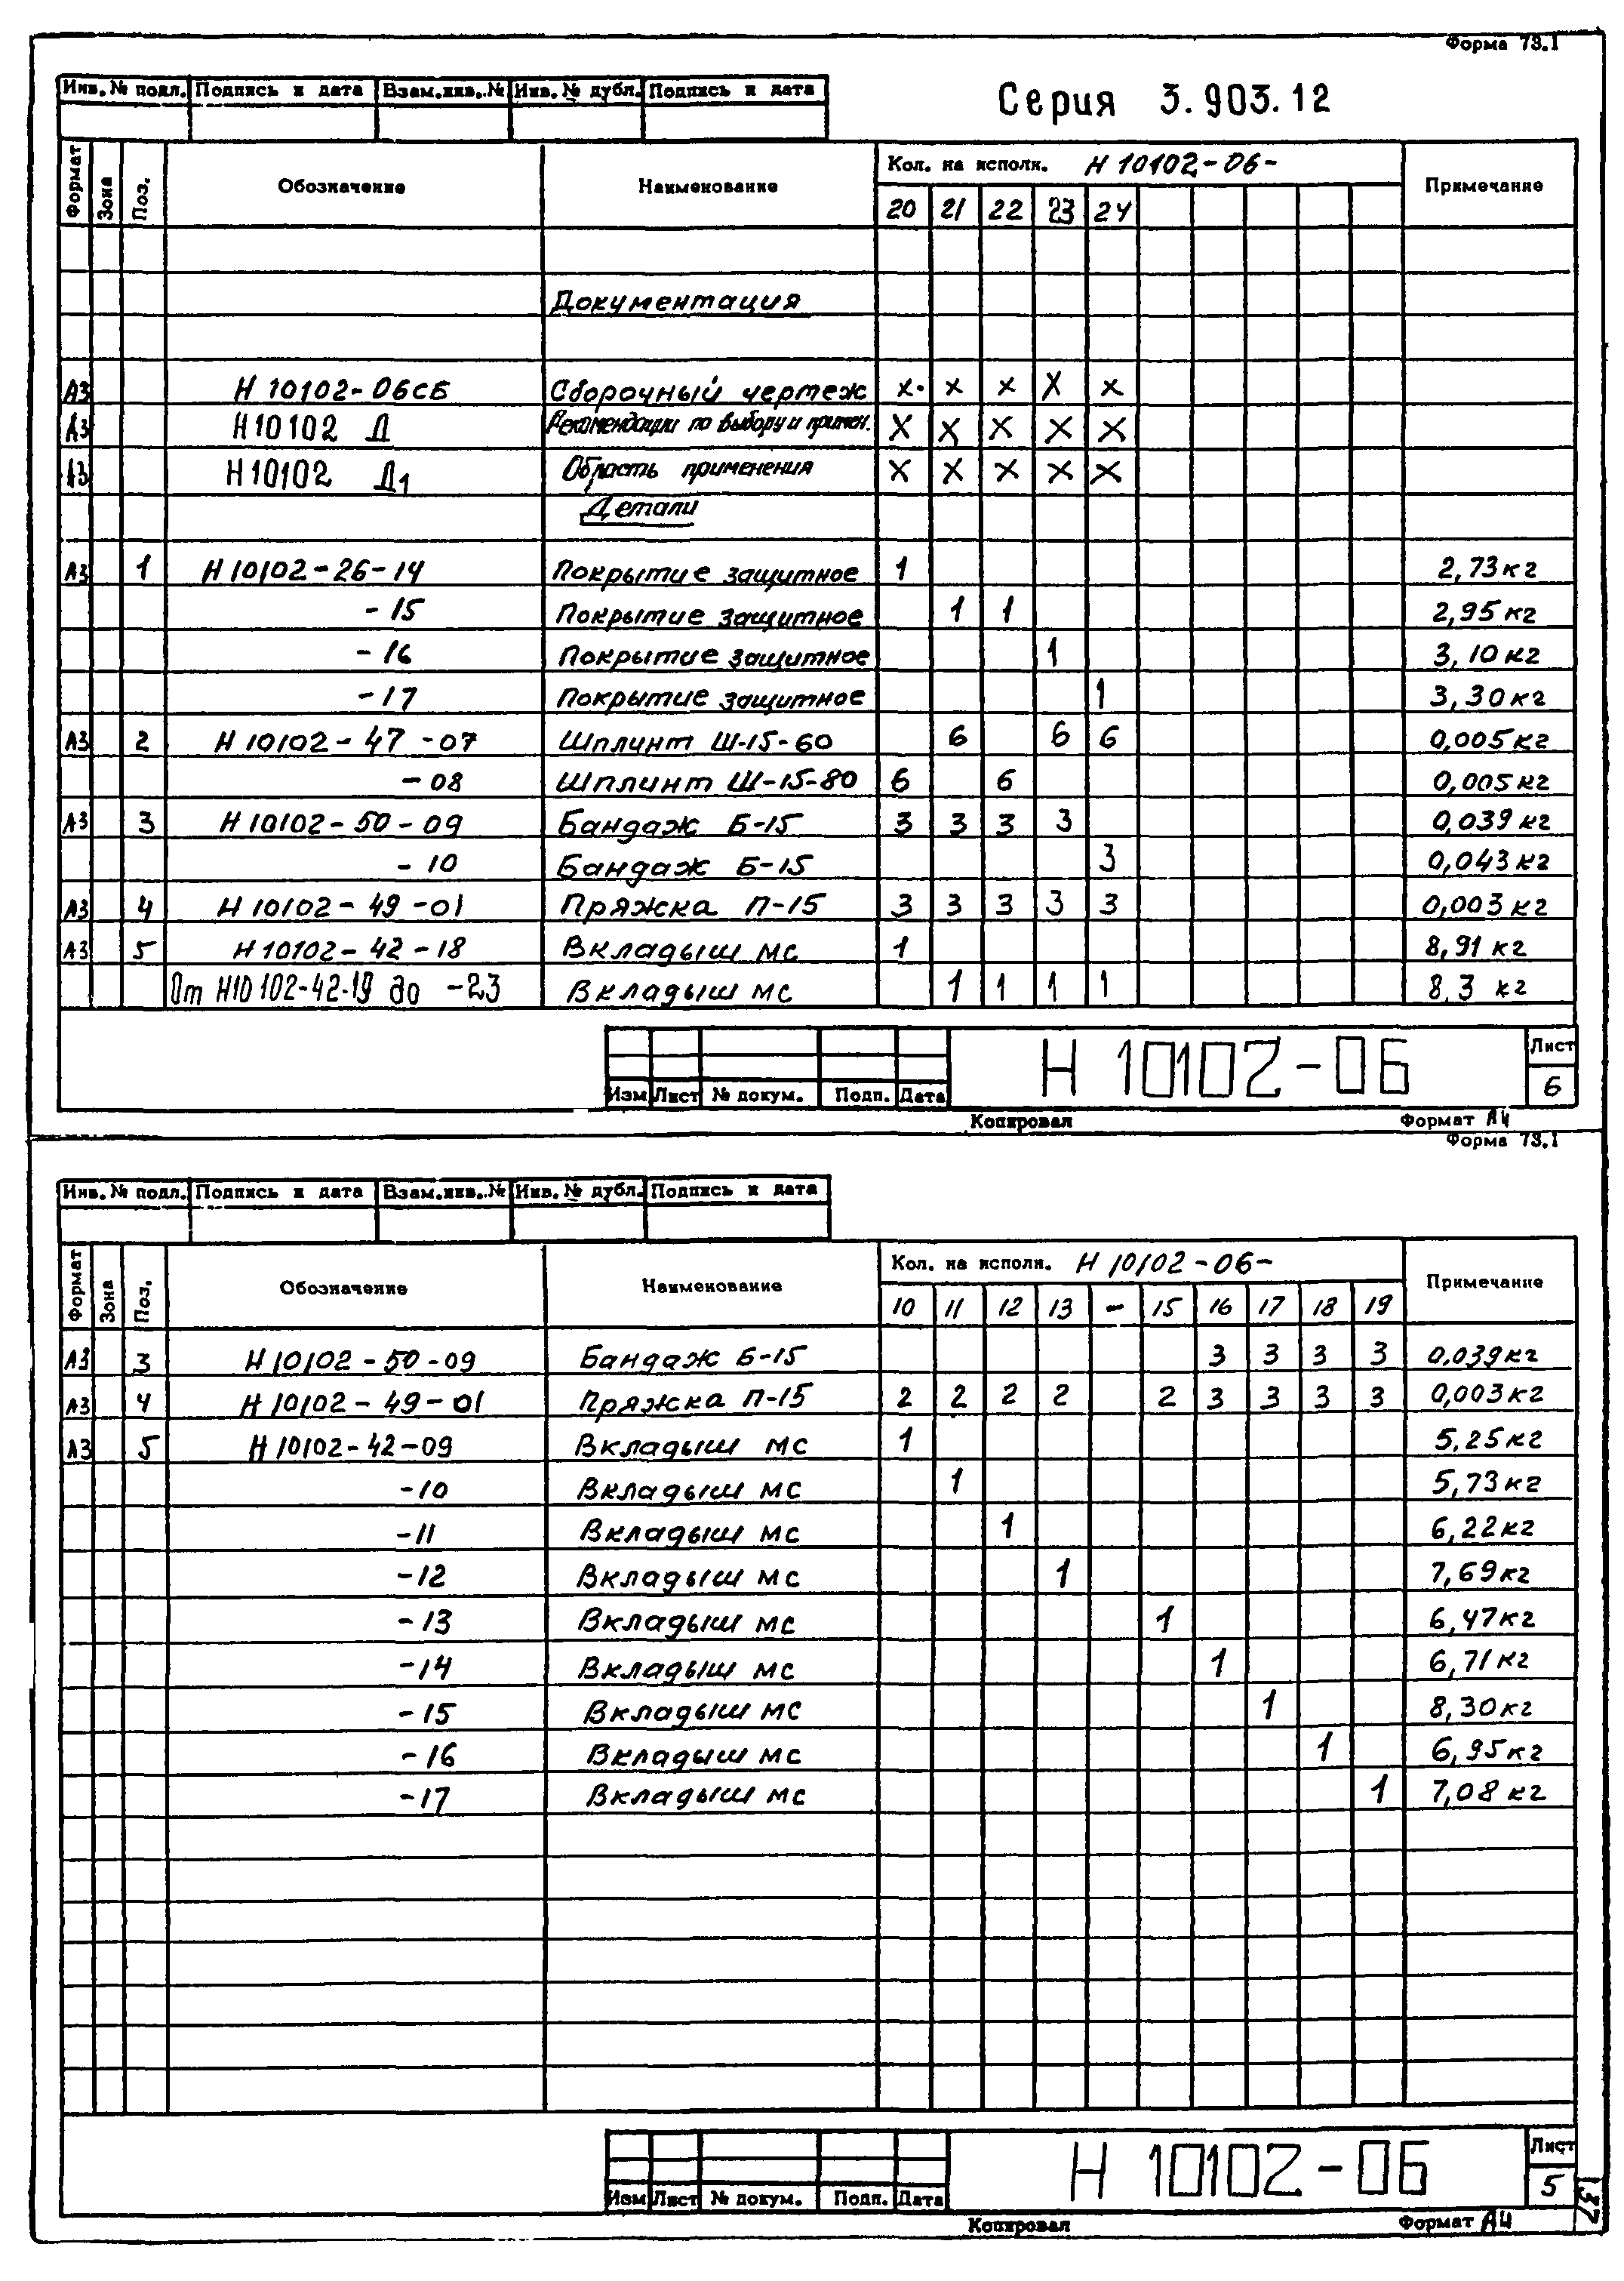 Форма 73.1
Инв. № подл. Подпись и дата Взам.инв. № Инв. № дубл. Подпись и дата
Серия 3.903.12
Формат Зона Поз. Обозначение Наименование Кол. на исполн. Н 10102-06- Примечание
20 21 22 23 24
Документация
А3 Н 10102-06СБ Сборочный чертеж х х х х х
А3 Н10102 Д Рекомендации по выбору и примен. х х х х х
А3 Н10102 Д1 Область применения х х х х х
Детали
А3 1 Н 10102-26-14 Покрытие защитное 1 2,73кг
-15 Покрытие защитное 1 1 2,95кг
-16 Покрытие защитное 1 3,10кг
-17 Покрытие защитное 1 3,30кг
А3 2 Н 10102-47-07 Шплинт Ш-15-60 6 6 6 0,005кг
-08 Шплинт Ш-15-80 6 6 0,005кг
А3 3 Н 10102-50-09 Бандаж Б-15 3 3 3 3 0,039кг
-10 Бандаж Б-15 3 0,043кг
А3 4 Н 10102-49-01 Пряжка П-15 3 3 3 3 3 0,003кг
А3 5 Н 10102-42-18 Вкладыш МС 1 8,91 кг
От Н10102-42-19 до -23 Вкладыш МС 1 1 1 1 8.3 кг
Изм Лист № докум. Подп. Дата
Н 10102-06
Лист
6
Копировал Формат А4
Форма 73.1
Инв. № подл. Подпись и дата Взам.инв. № Инв. № дубл. Подпись и дата
Формат Зона Поз. Обозначение Наименование Кол. на исполн. Н 10102-06- Примечание
10 11 12 13 - 15 16 17 18 19
А3 3 Н 10102-50-09 Бандаж Б-15 3 3 3 3 0,039кг
А3 4 Н 10102-49-01 Пряжка П-15 2 2 2 2 2 3 3 3 3 0,003кг
А3 5 Н 10102-42-09 Вкладыш МС 1 5,25кг
-10 Вкладыш МС 1 5,73кг
-11 Вкладыш МС 1 6,22кг
-12 Вкладыш МС 1 7,69кг
-13 Вкладыш МС 1 6,47кг
-14 Вкладыш МС 1 6,71кг
-15 Вкладыш МС 1 8,30кг
-16 Вкладыш МС 1 6,95кг
-17 Вкладыш МС 1 7,08кг
Изм Лист № докум. Подп. Дата
Н 10102-06
Лист
5
Копировал Формат А4
137